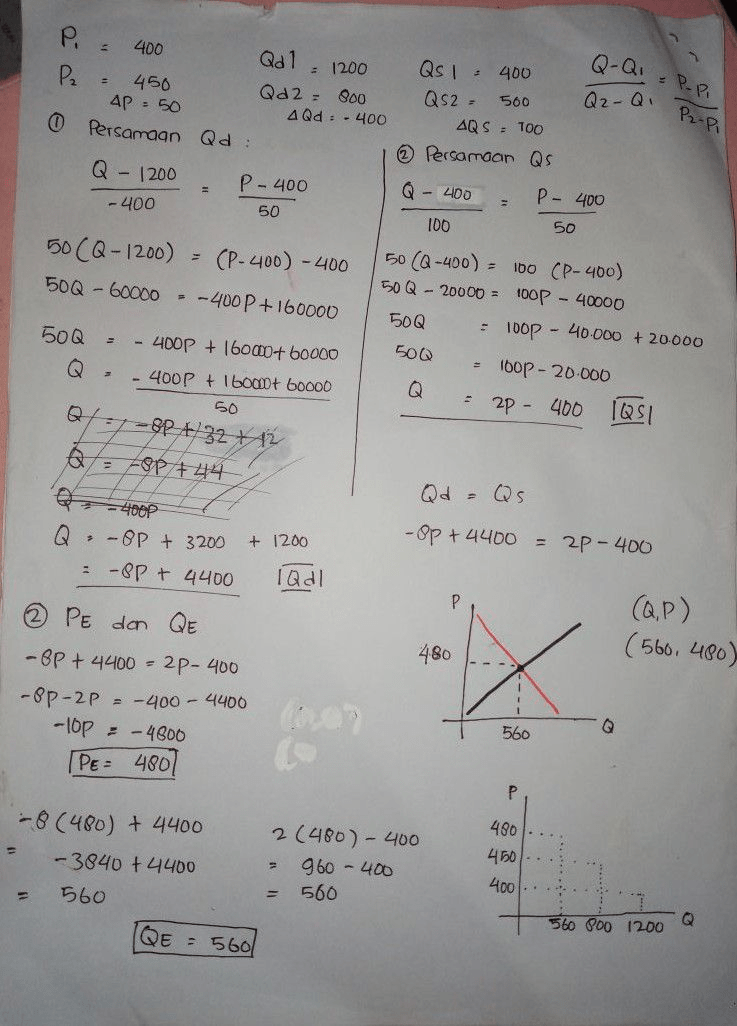 P₁ = 400
P₂ = 450
ΔP = 50
Qd1 = 1200
Qd2 = 800
ΔQd = -400
QS1 = 400
QS2 = 500
ΔQS = 100
Q-Q₁ / Q₂-Q₁ = P-P₁ / P₂-P₁
① Persamaan Qd :
Q - 1200 / -400 = P-400 / 50
50(Q-1200) = (P-400) -400
50Q - 60000 = -400P+160000
50Q = - 400P + 160000+60000
Q = - 400P + 160000+ 60000 / 50
Q = -8P + 32 + 12
Q = -8P + 44
Q = -400P
Q = -8P + 3200 + 1200
= -8P + 4400 |Qd|
② Persamaan Qs
Q - 400 / 100 = P- 400 / 50
50(Q-400) = 100 (P-400)
50Q - 20000 = 100P - 40000
50Q = 100P - 40.000 + 20.000
50Q = 100P-20.000
Q = 2P - 400 |QS|
Qd = Qs
-8P + 4400 = 2P-400
② PE dan QE
-8P + 4400 = 2P- 400
-8P-2P = -400 - 4400
-10P = -4800
PE = 480
-8(480) + 4400
= -3840 + 4400
= 560
2(480) - 400
= 960 - 400
= 560
QE = 560
P
480
560
Q
(Q,P)
(560, 480)
P
480
450
400
560 800 1200 Q